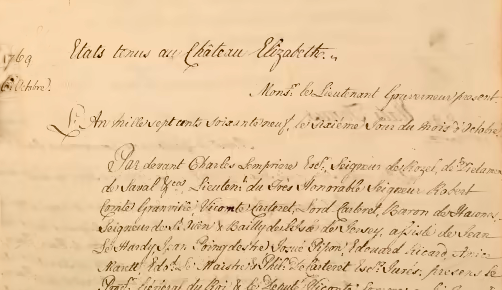 1769
6 Octobre.
Etats tenus au Château Elizabeth.
Monsr. le Lieutenant Gouverneur present
L'An mille sept cents soixante neuf, le sixieme jour du mois d'Octobre
Par devant Charles Lempriere Escr. Seigneur de Rozel, de
de Saval &cea Lieutent. du Tres Honorable Seigneur Robert
Comte Granville, Vicomte Carteret, Lord Carteret, Baron de Hawnes
Seigneur de St. Oüen & Bailly de l'Isle de Jersey, assisté de Jean
Le Hardy, Jean Poingdestre Josué Pipon, Edouard Ricard,
Le Maistre & Phil. De Carteret Escrs. Jurés, present le
General du Roi & le Deputé Vicomte